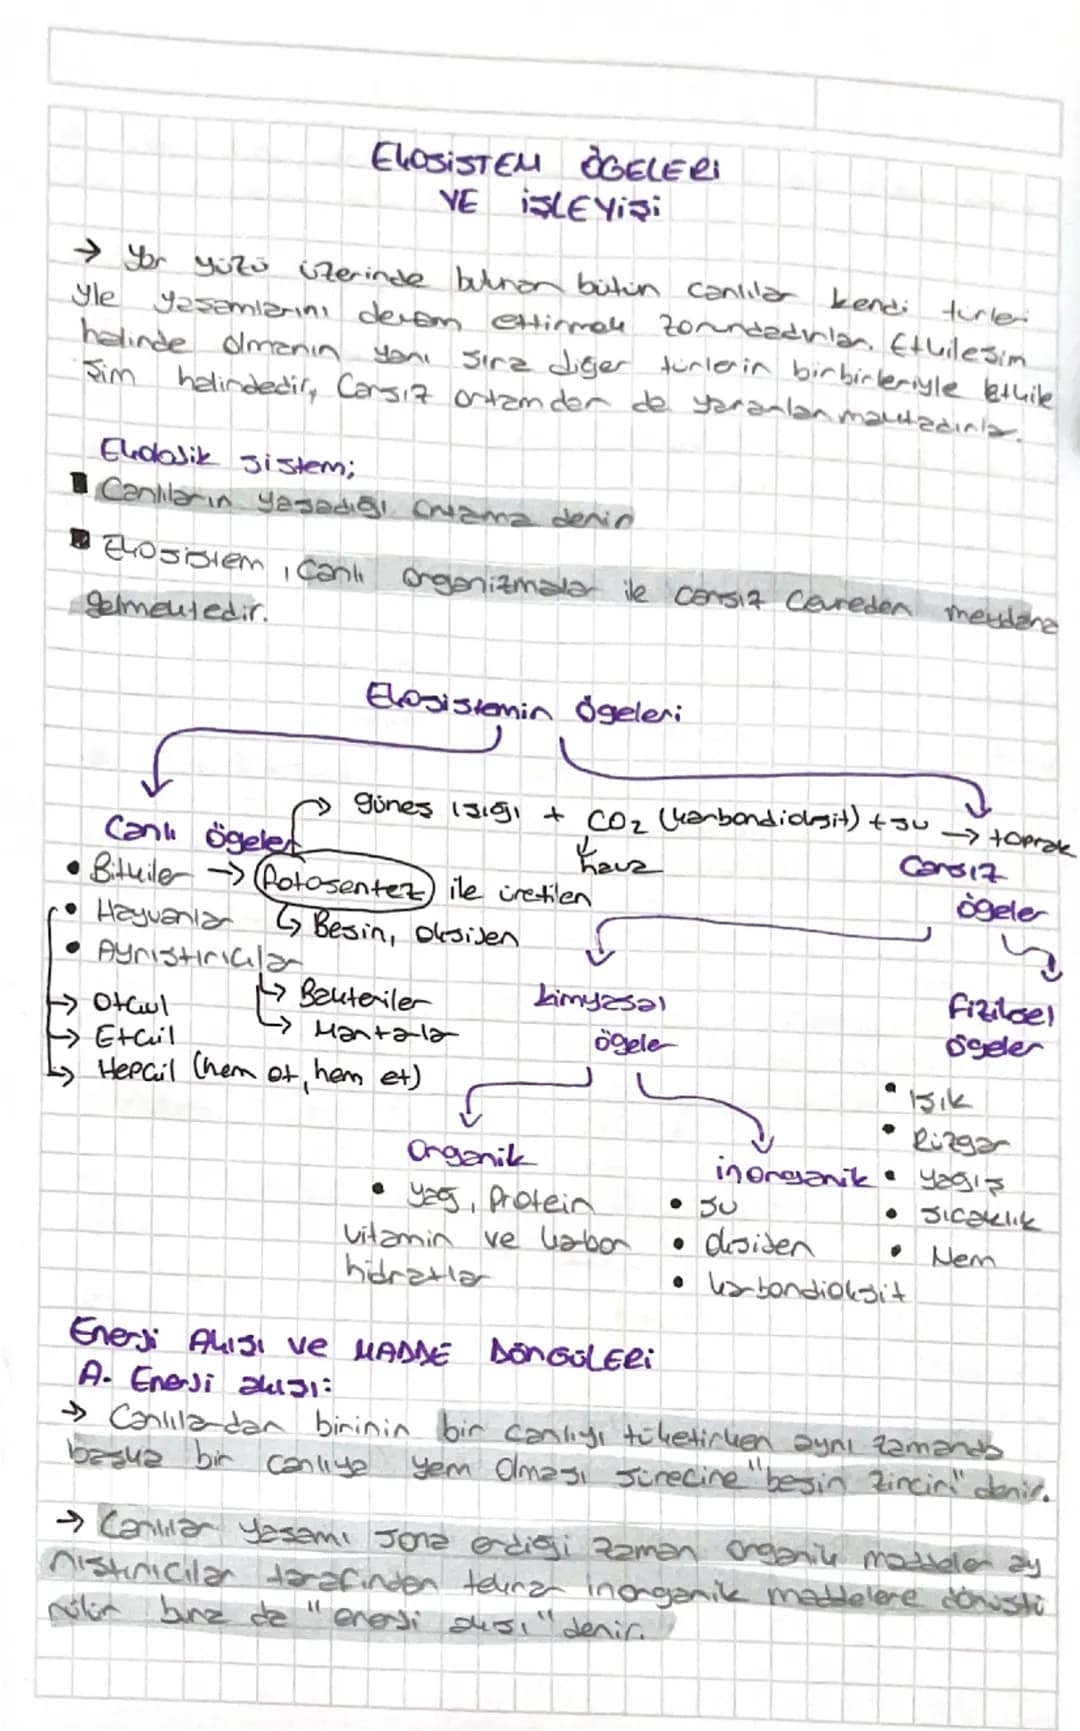 EKOSİSTEM ÖGELERİ
VE İŞLEYİŞİ
→ Yer yüzü üzerinde bulunan bütün canlılar kendi türleri
yle yaşamlarını devam ettirmek zorundadırlar. Etkileşim
halinde olmanın yanı sıra diğer türlerin birbirleriyle etkile
şim halindedir, Cansız ortamdan da yararlanmaktadırlar.
Ekolojik sistem;
Canlıların yaşadığı ortama denir
Ekosistem, Canlı organizmalar ile cansız Çevreden meydana
gelmektedir.
Ekosistemin Ögeleri
→ güneş ışığı + CO2 (karbondioksit) + su → toprak
hava
Canlı ögeler
Cansız
ögeler
• Bitkiler → Fotosentez ile üretilen
↳ Besin, oksijen
• Hayvanlar
• Ayrıştırıcılar
↳ Bakteriler
↳ Mantarlar
→ Otçul
→ Etçil
→ Hepçil (hem ot, hem et)
kimyasal
ögeler
fiziksel
ögeler
• Işık
• Rüzgar
• yağış
• sıcaklık
• Nem
Organik
• yağ, Protein
vitamin ve karbon
hidratlar
inorganik
• su
• oksijen
• karbondioksit
Enerji Akışı ve MADDE DÖNGÜLERİ
A. Enerji akışı:
→ Canlılardan birinin bir canlıyı tüketirken aynı zamanda
başka bir canlıya yem olması sürecine "besin zinciri" denir.
→ Canlılar yaşamı sona erdiği zaman organik maddeler ay
rıştırıcılar tarafından tekrar inorganik maddelere dönüştü
rülür buna da "enerji akışı" denir.